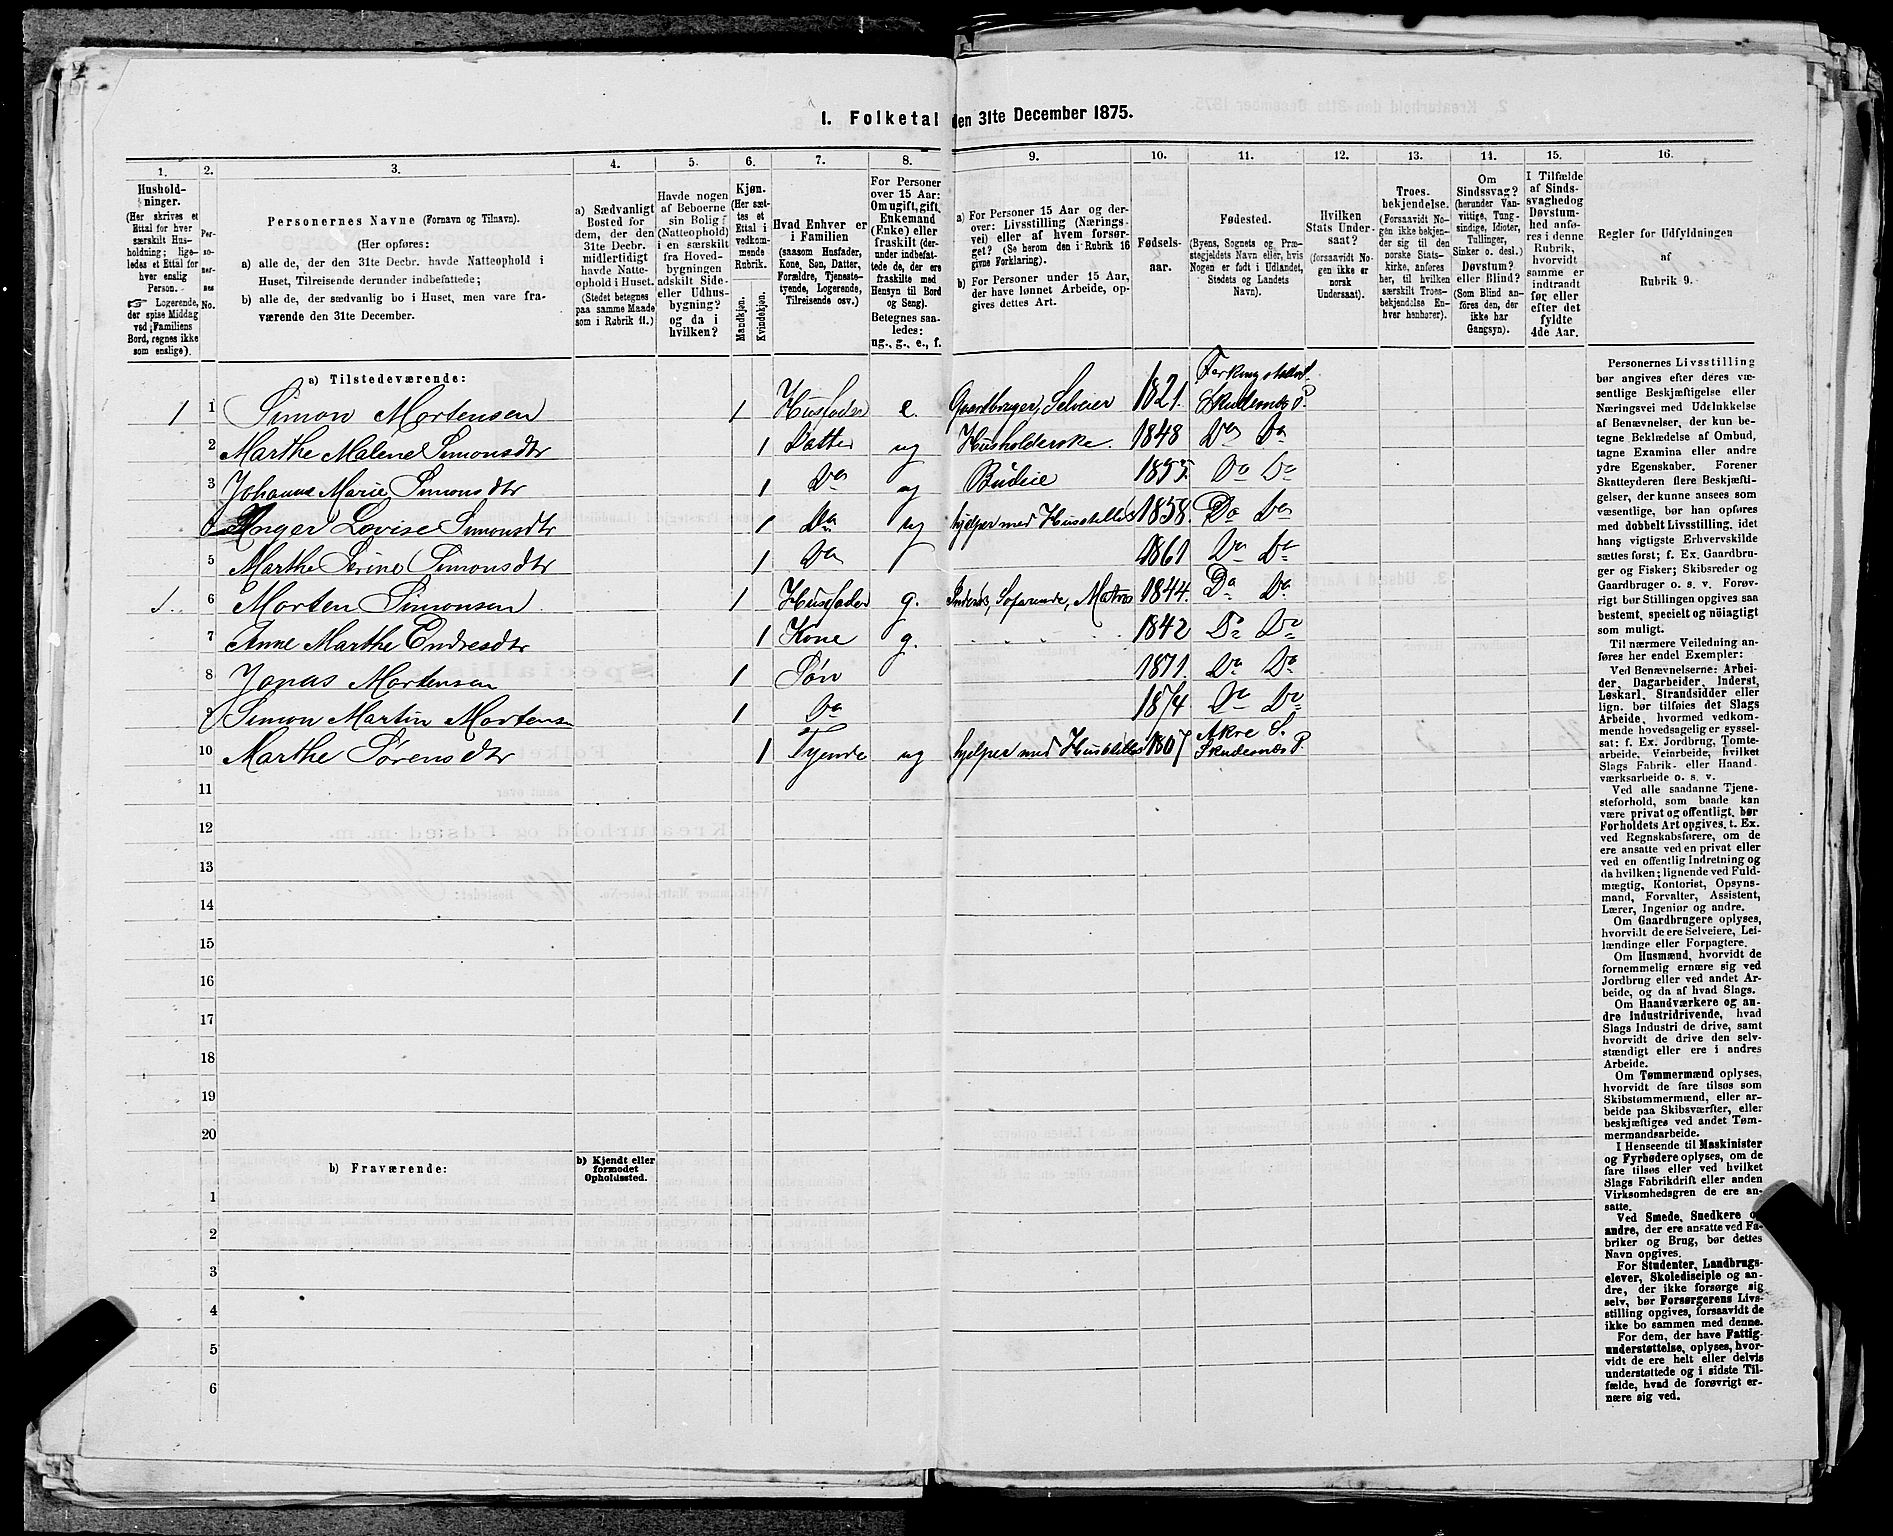 I. Folketal den 31te December 1875.
1. 2. 3. 4. 5. 6. 7. 8. 9. 10. 11. 12. 13. 14. 15. 16.
Hushold-
ninger.
(Her skrives et
Ettal for hver
særskilt Hus-
holdning; lige-
ledes et Ettal for
hver enslig
Person.
☞ Logerende,
der spise Middag
ved Familiens
Bord, regnes ikke
som enslige).
Per-
so-
ner-
nes
No.
Personernes Navne (Fornavn og Tilnavn).
(Her opføres:
a) alle de, der den 31te Decbr. havde Natteophold i
Huset, Tilreisende derunder indbefattede;
b) alle de, der sædvanlig bo i Huset, men vare fra-
værende den 31te December.
a) Sædvanligt
Bosted for
dem, der den
31te Decbr.
midlertidigt
havde Natte-
ophold i Huset.
(Stedet betegnes
paa samme Maade
som i Rubrik 11.)
Havde nogen
af Beboerne
sin Bolig
(Natteophold)
i en særskilt
fra Hoved-
bygningen
adskilt Side-
eller Udhus-
bygning?
og da i
hvilken?
Kjøn.
(Her sæt-
tes et
Ettal i
vedkom-
mende
Rubrik.
Mandkjøn.
Kvindekjøn.
Hvad Enhver er
i Familien
(saasom Husfader,
Kone, Søn, Datter,
Forældre, Tjeneste-
tyende, Logerende,
Tilreisende osv.)
For Personer
over 15 Aar:
Om ugift, gift,
Enkemand
(Enke) eller
fraskilt (der-
under indbefat-
tede de, der ere
fraskilte med
Hensyn til Bord
og Seng).
Betegnes saa-
ledes:
ug., g., e., f.
a) For Personer 15 Aar og der-
over: Livsstilling (Nærings-
vei) eller af hvem forsør-
get? (Se herom den i Rubrik 16
givne Forklaring).
b) For Personer under 15 Aar,
der have lønnet Arbeide, op-
gives dettes Art.
Fødsels-
aar.
Fødested.
(Byens, Sognets og Præ-
stegjeldets Navn eller, hvis
Nogen er født i Udlandet,
Stedets og Landets
Navn).
Hvilken
Stats Under-
saat?
(forsaavidt No-
gen ikke er
norsk
Undersaat).
Troes-
bekjendelse.
(Forsaavidt No-
gen ikke bekjen-
der sig til den
norske Stats-
kirke, anføres
her, til hvilken
særskilt Troes-
bekjendelse En-
hver henhører).
Om
Sindssvag?
(herunder Van-
vittige, Tung-
sindige, Idioter,
Tullinger,
Sinker o. desl.)
Døvstum?
eller Blind?
(Som Blind an-
føres den, der
ikke har
Gangsyn).
I Tilfælde
af Sinds-
svaghed og
Døvstum-
hed anfø-
res i denne
Rubrik,
hvorvidt
samme er
indtraadt
før eller
efter det
fyldte
4de Aar.
Regler for Udfyldningen
af
Rubrik 9.
a) Tilstedeværende:
1 1 Simon Mortensen 1 Husfader e. Gaardbruger, Selveier 1821. Ferkingstad S. Skudernæs P.
2 Marthe Malene Simonsdtr 1 Datter ug Husholderske. 1848 Do Do
3 Johanne Marie Simonsdtr 1 Do ug Budeie 1855. Do Do
Inger Lovise Simonsdtr 1 Do ug hjelper med Husstellet 1858. Do Do
5 Marthe Serine Simonsdtr 1 Do 1861 Do Do
1. 6 Morten Simonsen 1 Husfader g. Inderst, Søfarende, Matros 1844. Do Do
7 Anne Marthe Endresdtr 1 Kone g. 1842 Do Do
8 Jonas Mortensen 1 Søn 1871. Do Do
9 Simon Martin Mortensen 1 Do 1874 Do Do
10 Marthe Sørensdtr 1 Tyende ug hjelper med Husstellet 1807 Akre S. Skudernæs P.
11
12
13
14
15
16
17
18
19
20
b) Fraværende:
b) Kjendt eller
formodet
Opholdssted.
1
2
3
4
5
6
Personernes Livsstilling
bør angives efter deres væ-
sentlige Beskjæftigelse eller
Næringsvei med Udelukkelse
af Benævnelser, der kun be-
tegne Beklædelse af Ombud,
tagne Examina eller andre
ydre Egenskaber. Forener
Skatteyderen flere Beskjæfti-
gelser, der kunne ansees som
væsentlige, bør han opføres
med dobbelt Livsstilling, idet
hans vigtigste Erhvervskilde
sættes først; f. Ex. Gaardbru-
ger og Fisker; Skibsreder og
Gaardbruger o. s. v. Forøv-
rigt bør Stillingen opgives saa
bestemt, specielt og nöiagtigt
som muligt.
Til nærmere Veiledning an-
føres her endel Exempler:
Ved Benævnelserne: Arbei-
der, Dagarbeider, Inderst,
Løskarl, Strandsidder eller
lign. bør tilføies det Slags
Arbeide, hvormed vedkom-
mende hovedsagelig er syssel-
sat: f. Ex. Jordbrug, Tomte-
arbeide, Veiarbeide, hvilket
Slags Fabrik- eller Haand-
værksarbeide o. s. v.
Ved alle saadanne Tjene-
steforhold, som baade kan
være privat og offentligt, bør
Forholdets Art opgives, t. Ex.
ved Regnskabsførere, om de
ere ansatte ved en privat eller
ved en offentlig Indretning og
da hvilken; lignende ved Fuld-
mægtig, Kontorist, Opsyns-
mand, Forvalter, Assistent,
Lærer, Ingeniør og andre.
Om Gaardbrugere oplyses,
hvorvidt de ere Selveiere, Lei-
lændinge eller Forpagtere.
Om Husmænd, hvorvidt de
fornemmelig ernære sig ved
Jordbrug eller ved andet Ar-
beide, og da af hvad Slags.
Om Haandværkere og an-
dre Industridrivende, hvad
Slags Industri de drive, samt
hvorvidt de drive den selv-
stændigt eller ere i andres
Arbeide.
Om Tømmermænd oplyses,
hvorvidt de fare tilsøs som
Skibstømmermænd, eller ar-
beide paa Skibsværfter, eller
beskjæftiges ved andet Tøm-
mermandsarbeide.
I Henseende til Maskinister
og Fyrbødere oplyses, om de
fare tilsøs eller ved hvilket
Slags Fabrikdrift eller anden
Virksomhedsgren de ere an-
satte.
Ved Smede, Snedkere o
andre, der ere ansatte ved Fa-
briker og Brug, bør dettes
Navn opgives.
For Studenter, Landbrugs-
elever, Skoledisciple og an-
dre, der ikke forsørge sig
selv, bør Forsørgerens Livs-
stilling opgives, forsaavidt de
ikke bo sammen med denne.
For dem, der have Fattig-
understøttelse, oplyses, hvor-
vidt de ere helt eller delvis
understøttede og i sidste Til-
fælde, hvad de forøvrigt er-
nære sig ved.